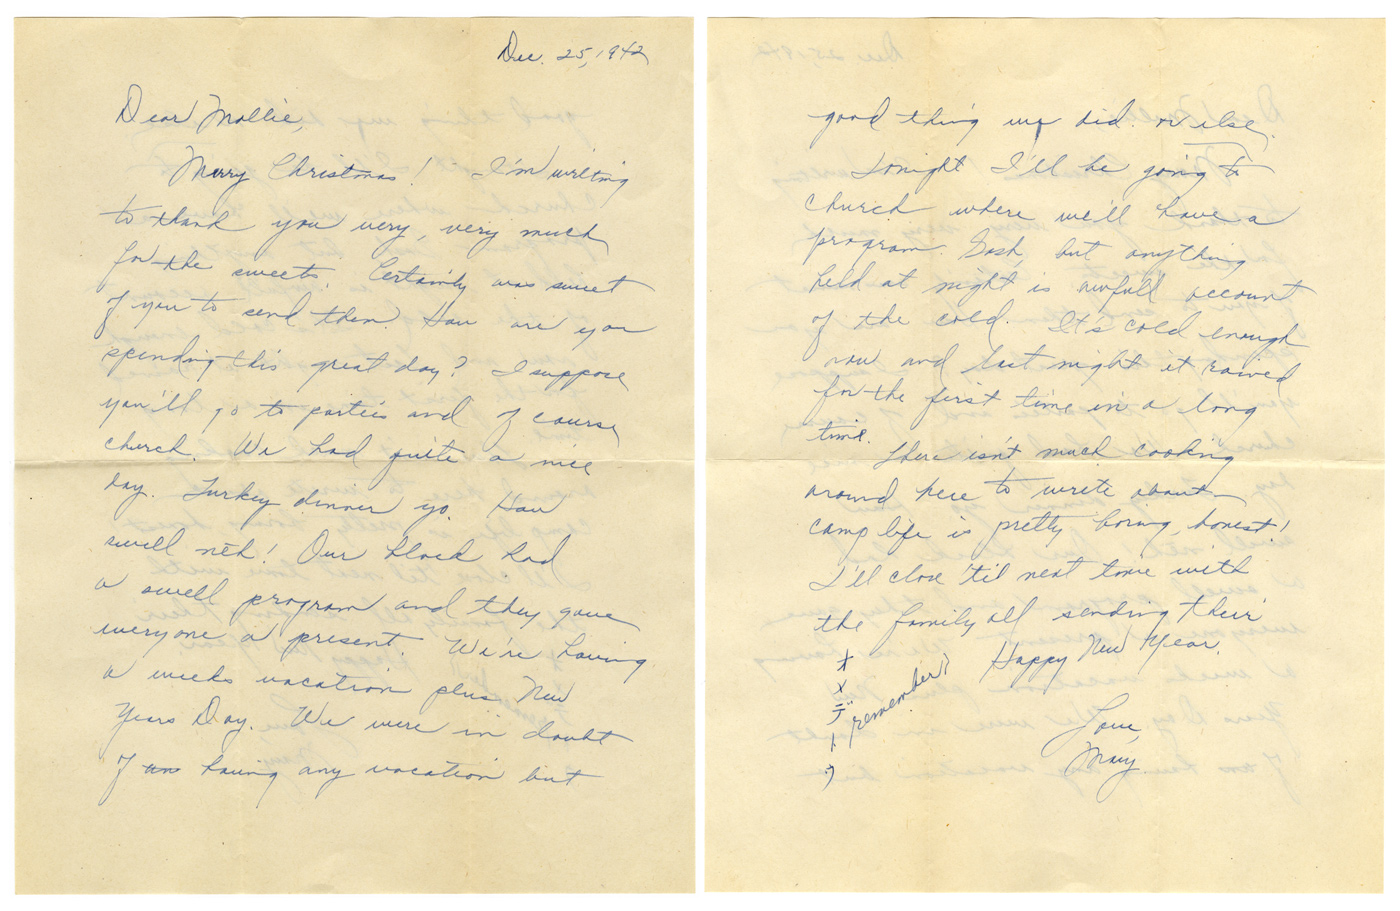 Dec. 25, 1942
Dear Mollie,
Merry Christmas! - I'm writing
to thank you very, very much
for the sweets. Certainly was sweet
of you to send them. How are you
spending this great day? I suppose
you'll go to parties and of course
church. We had quite a nice
day. Turkey dinner yo. How
swell nēh! Our block had
a swell program and they gave
everyone a present. We're having
a weeks vacation plus New
Years Day. We were in doubt
of having any vacation but
good thing we did. or else.
Tonight I'll be going to
church where we'll have a
program. Gosh, but anything
held at night is awfull account
of the cold. It's cold enough
now and last night it rained
for the first time in a long
time.
There isn't much cooking
around here to write about—
camp life is pretty boring, honest!
I'll close 'til next time with
the family all sending their
Happy New Year.
remember?
Love,
Mary